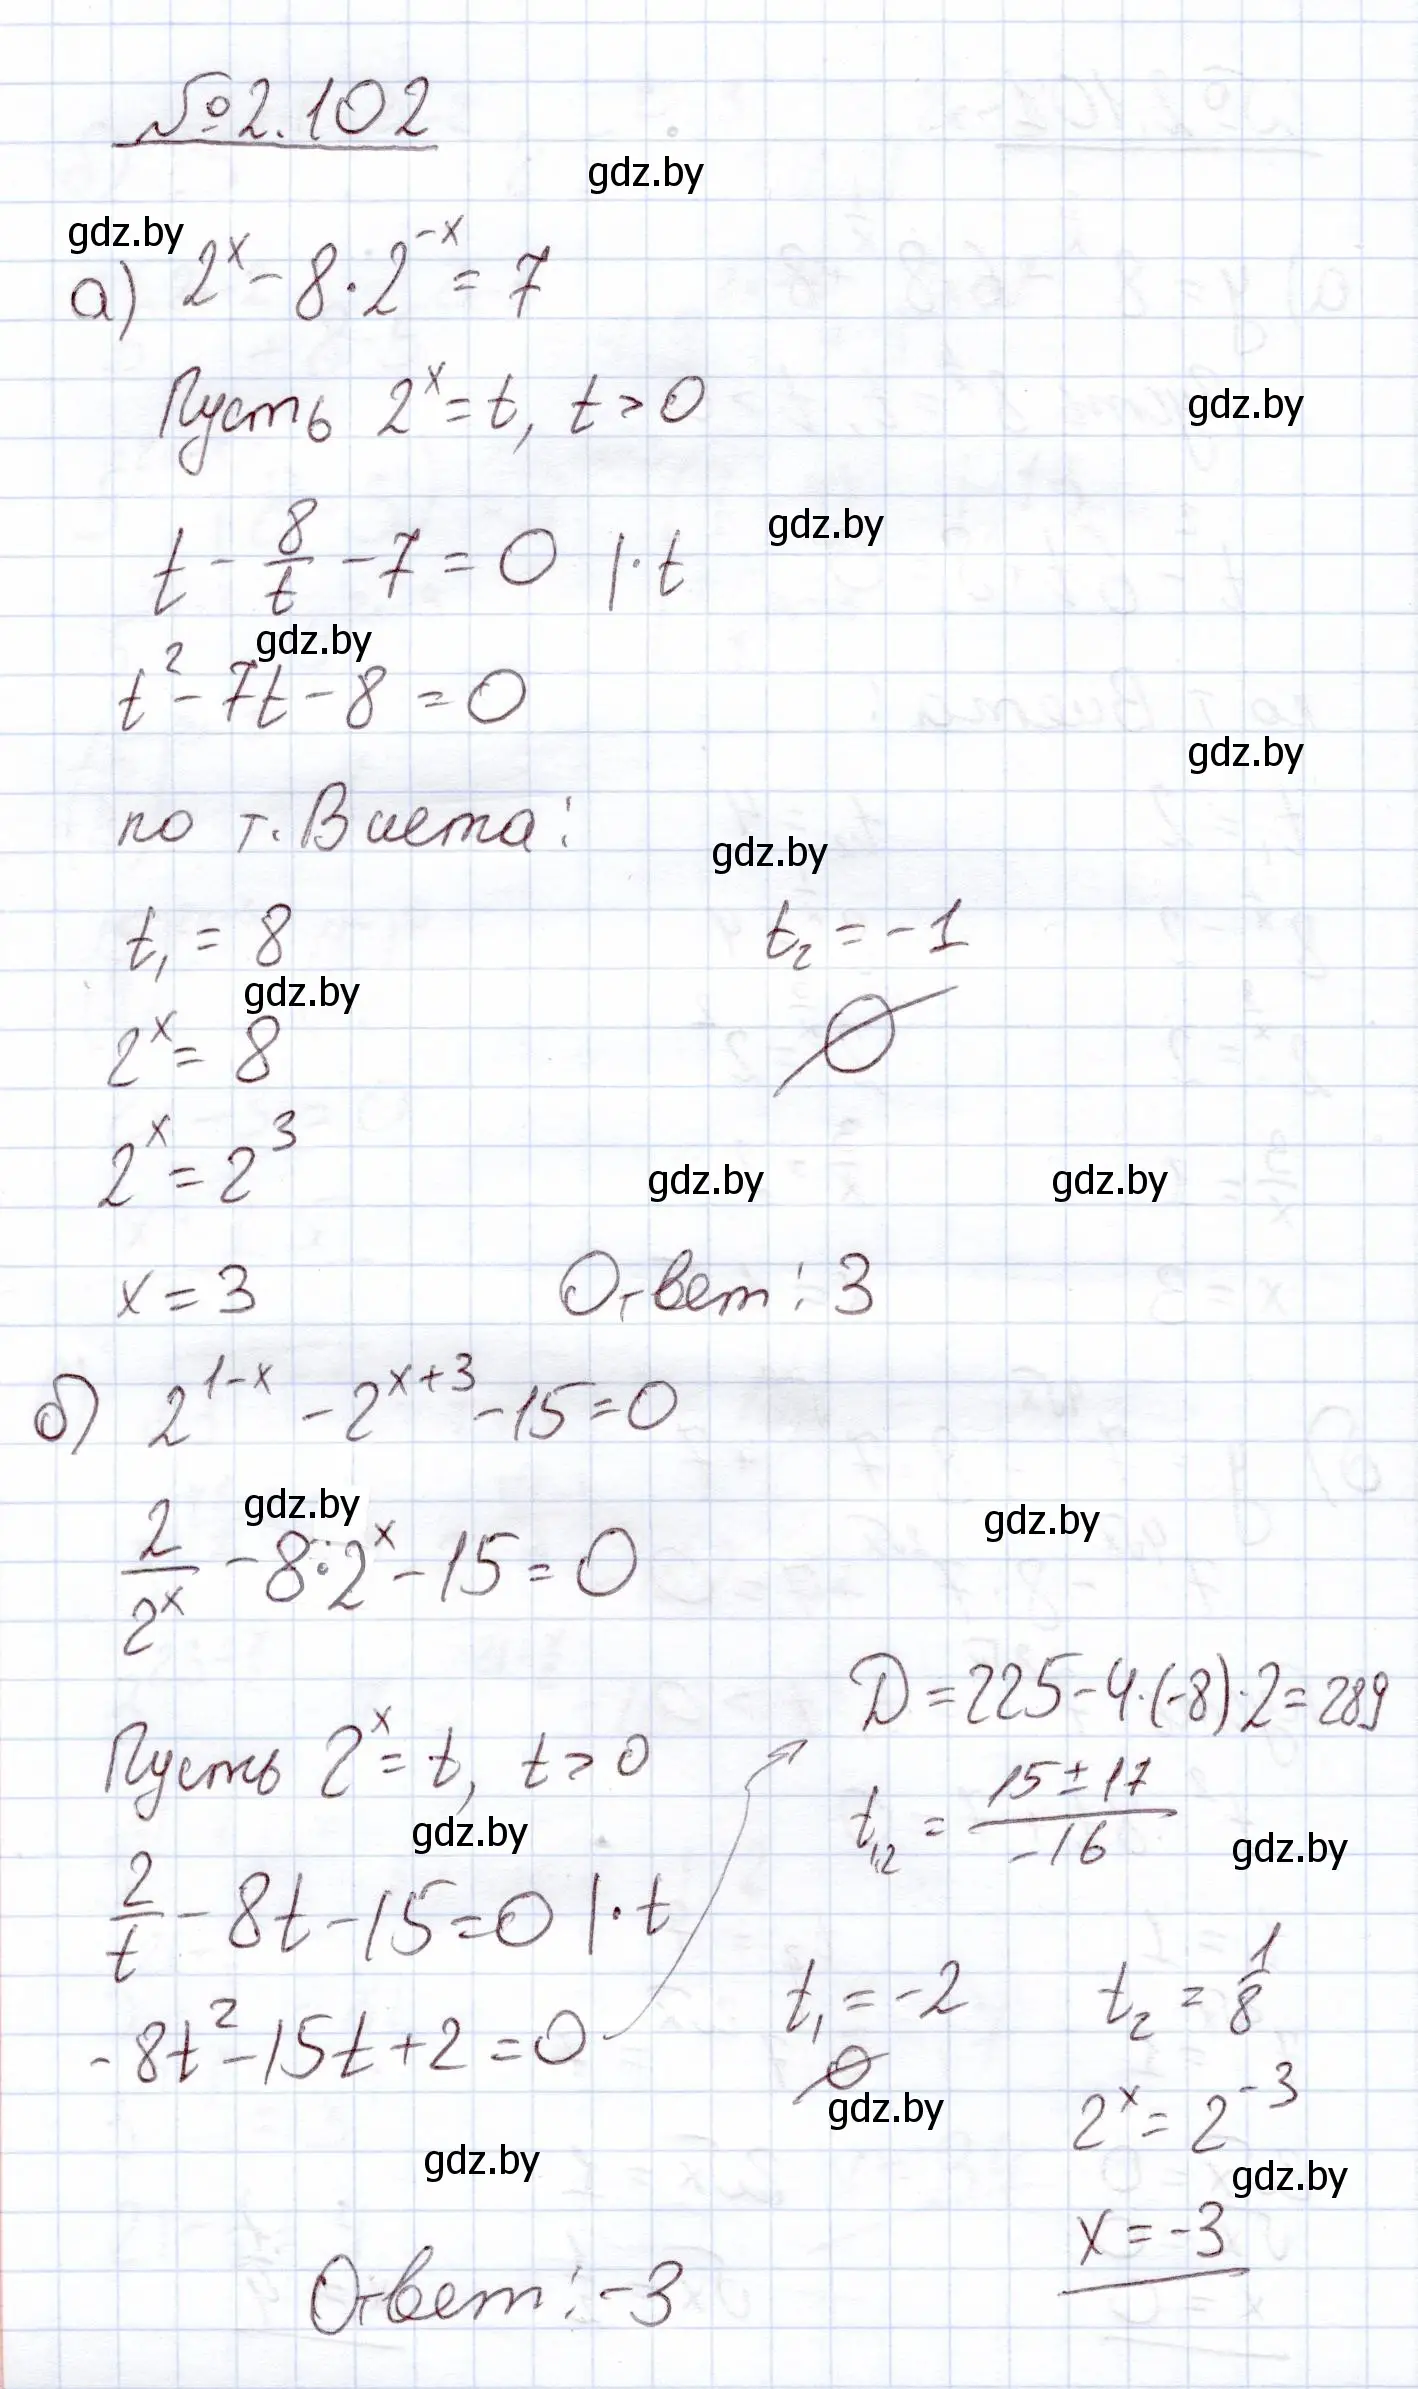 №2.102
gdz.by
gdz.by
а) 2^x - 8·2^{-x} = 7
Пусть 2^x = t, t > 0
gdz.by
gdz.by
t - 8/t - 7 = 0 |·t
gdz.by
t² - 7t - 8 = 0
gdz.by
по т. Виета:
gdz.by
t₁ = 8 t₂ = -1
gdz.by
2^x = 8 ∅
2^x = 2³
gdz.by gdz.by
x = 3 Ответ: 3
б) 2^{1-x} - 2^{x+3} - 15 = 0
gdz.by gdz.by
2/2^x - 8·2^x - 15 = 0
D = 225 - 4·(-8)·2 = 289
Пусть 2^x = t, t > 0
t₁,₂ = (15 ± 17)/-16
gdz.by gdz.by
2/t - 8t - 15 = 0 |·t
t₁ = -2 t₂ = 1/8
-8t² - 15t + 2 = 0
∅
gdz.by
2^x = 2^{-3}
gdz.by gdz.by
x = -3
Ответ: -3